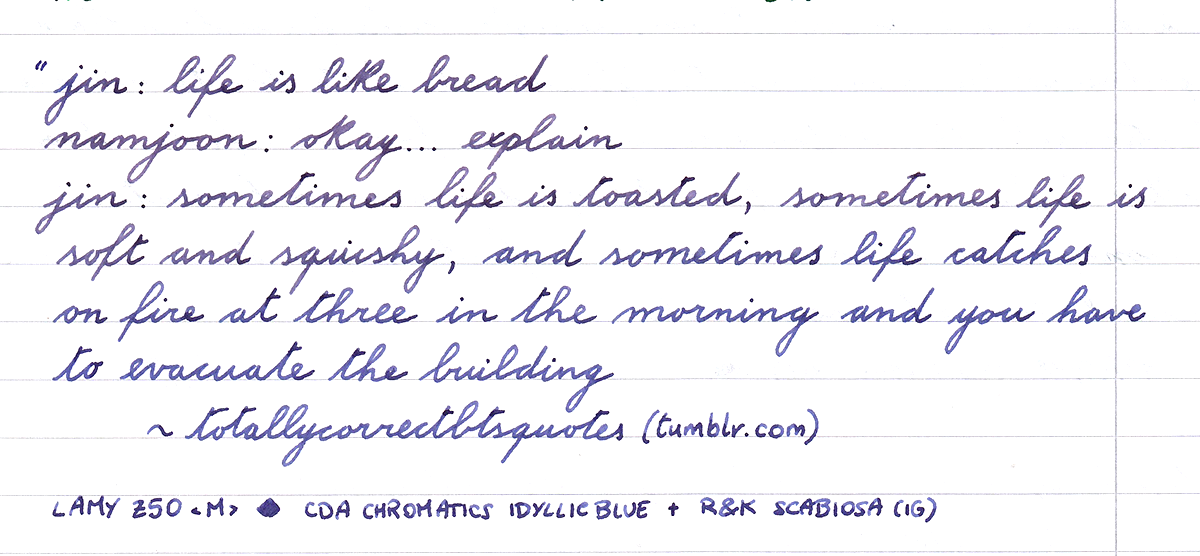 " jin: life is like bread
namjoon: okay... explain
jin: sometimes life is toasted, sometimes life is
soft and squishy, and sometimes life catches
on fire at three in the morning and you have
to evacuate the building
~ totallycorrectbtsquotes (tumblr.com)
LAMY Z50 <M> ◆ CDA CHROMATICS IDYLLIC BLUE + R&K SCABIOSA (IG)